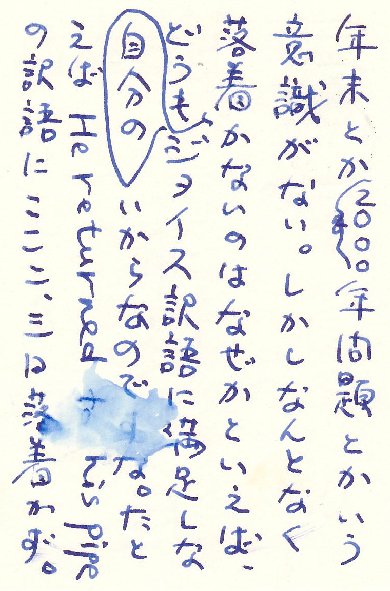 年末とか2000年問題とかいう
意識がない。しかしなんとなく
落着かないのはなぜかといえば、
どうも自分のジョイス訳語に満足しな
いからなのですな。たと
えば He returned to his pipe
の訳語にここ二、三日落着かず。